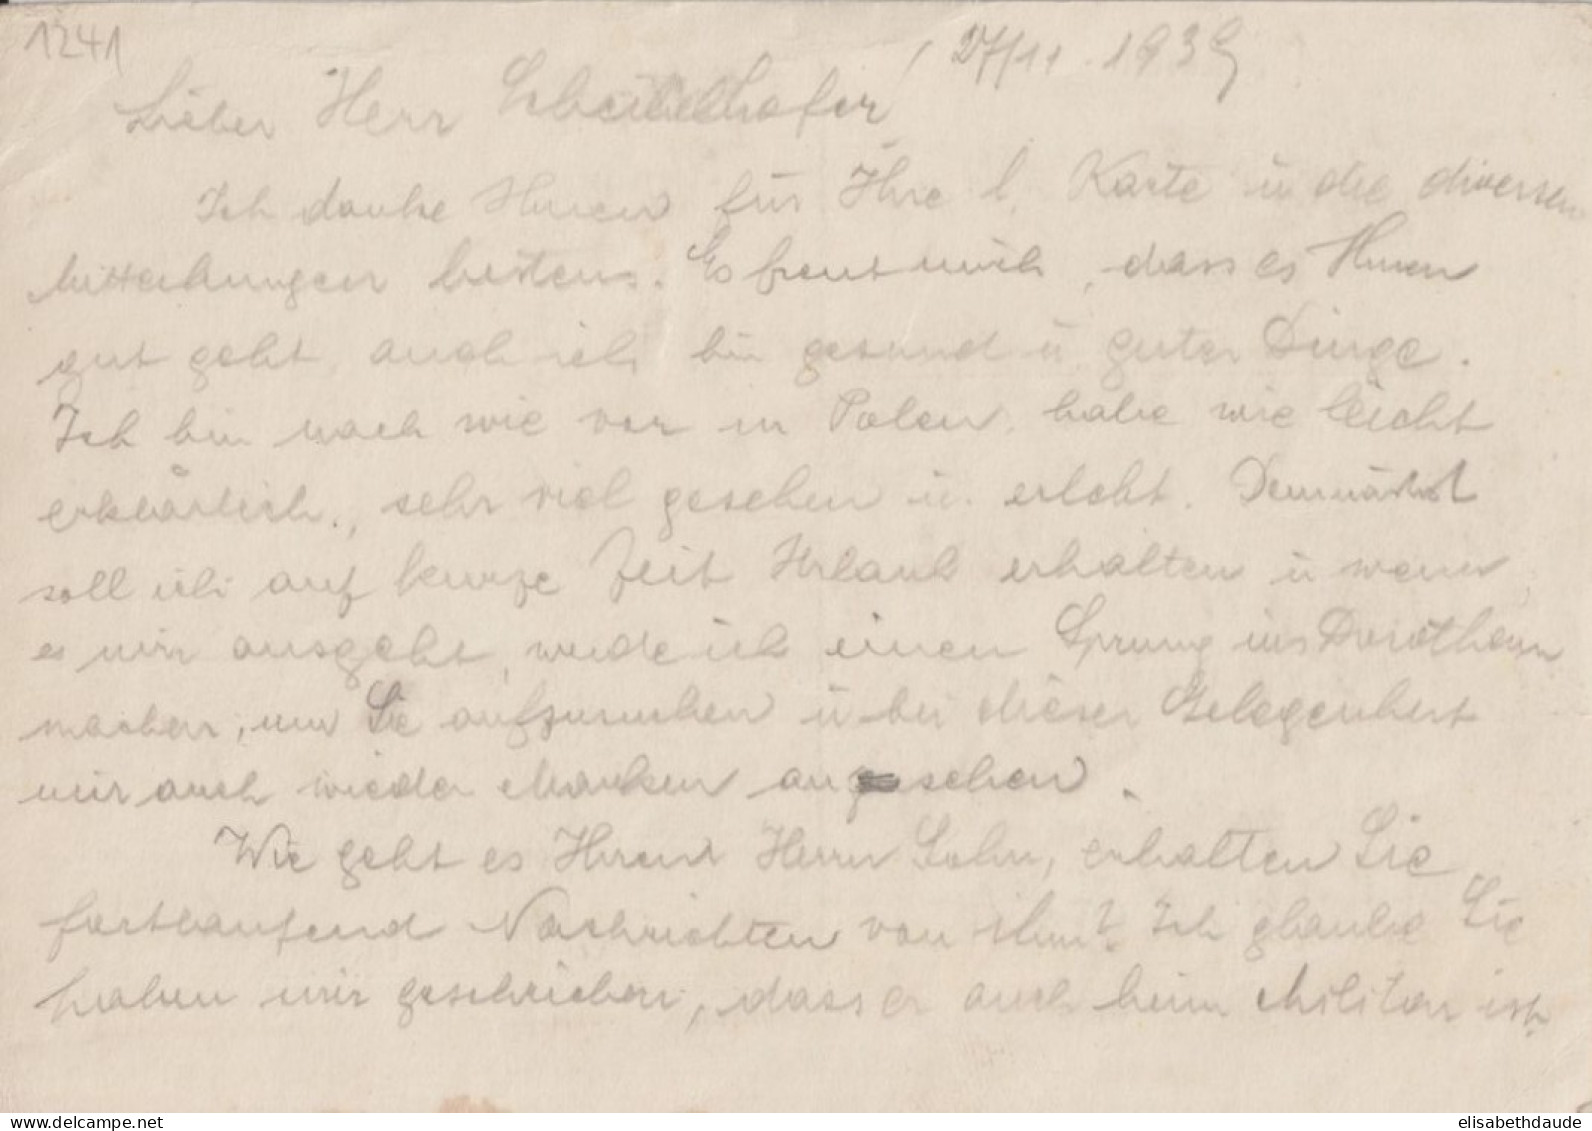 1241
27/11. 1939
Lieber Herr
Ich danke Ihnen für Ihre l. Karte u die diversen
Mitteilungen bestens. Es freut mich, dass es Ihnen
gut geht, auch ich bin gesund u. guter Dinge.
Ich bin nach wie vor in Polen, habe wie leicht
erklärlich, sehr viel gesehen u. erlebt. Demnächst
soll ich auf kurze Zeit Urlaub erhalten u wenn
es mir ausgeht, werde ich einen Sprung ins Dorotheum
machen, um Sie aufzusuchen u bei dieser Gelegenheit
mir auch wieder Marken anzusehen.
Wie geht es Ihrem Herrn Sohn, erhalten Sie
fortlaufend Nachrichten von ihm? Ich glaube Sie
haben mir geschrieben, dass er auch beim Militär ist.
www.delcampe.net
elisabethdaude